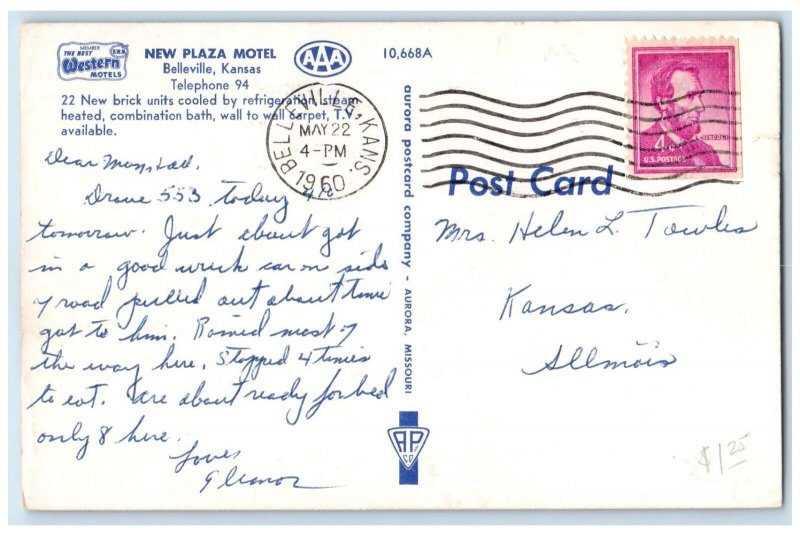 MEMBER
THE BEST
Western
MOTELS
NEW PLAZA MOTEL
Belleville, Kansas
Telephone 94
22 New brick units cooled by refrigeration, steam
heated, combination bath, wall to wall carpet, T.V.
available.
AAA
10,668A
BELLEVILLE, KANS.
MAY 22
4-PM
1960
4¢
LINCOLN
U.S. POSTAGE
Post Card
aurora postcard company - AURORA, MISSOURI
APCO
Dear
Drove 553 today
tomorrow. Just about got
in a good wreck car on side
of road pulled out about time
got to him. Rained most of
the way here. Stopped 4 times
to eat. are about ready for bed
only 8 here.
Love
Eleanor
Mrs. Helen L. Towles
Kansas,
Illinois
$1.25